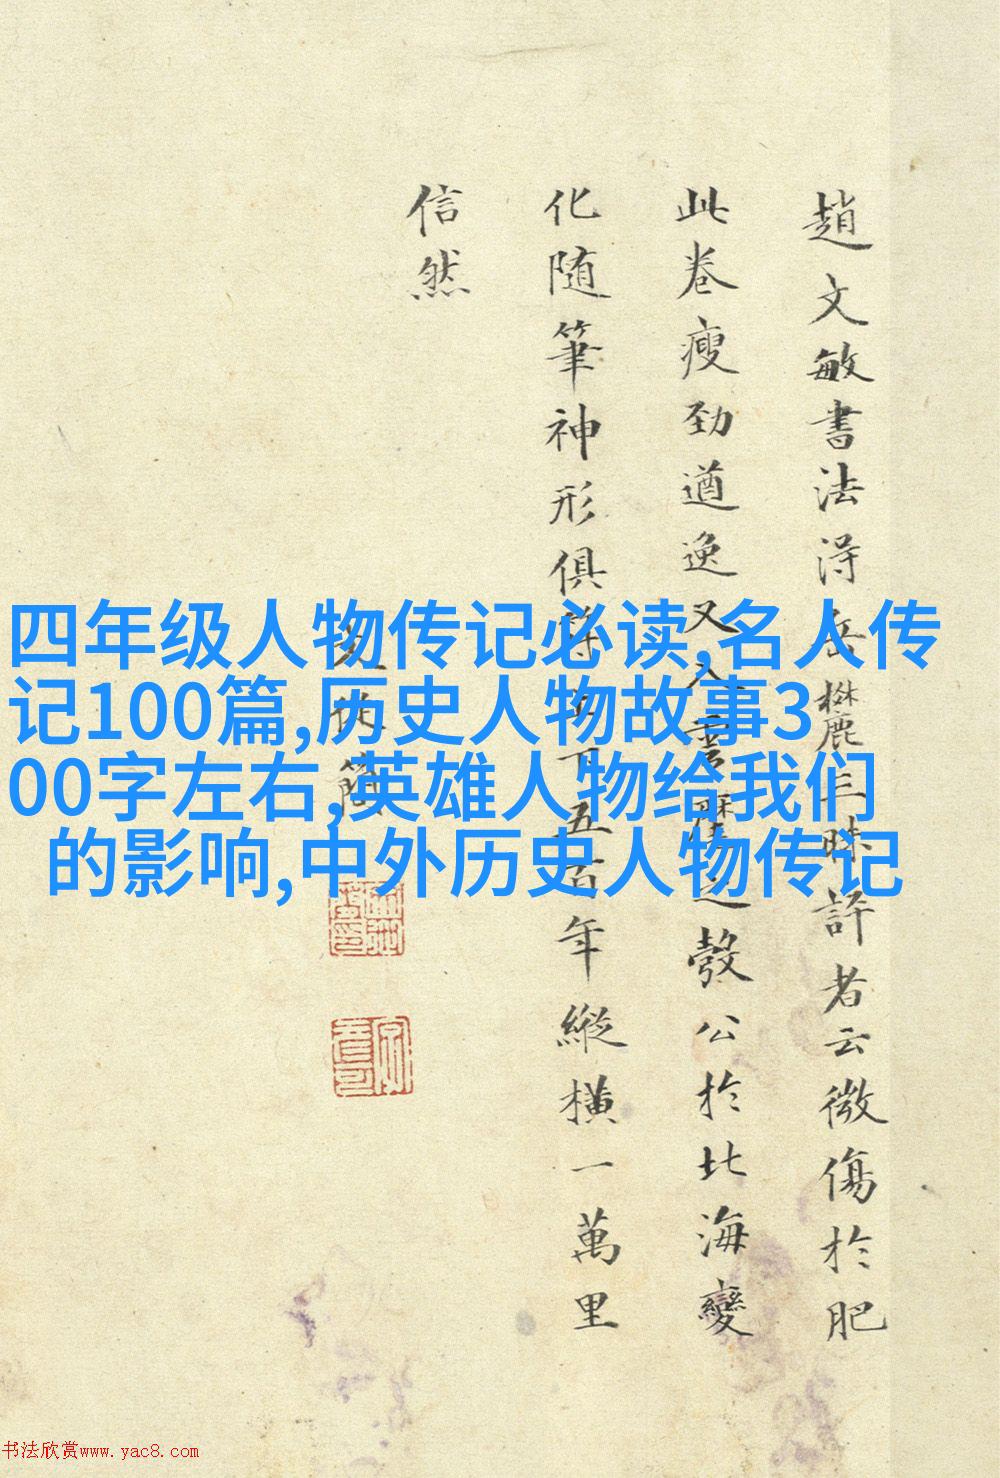 四年级人物传记必读,名人传
记100篇,历史人物故事3
00字左右,英雄人物给我们
的影响,中外历史人物传记
趙文敏書法淂岳麓三昧評者云微傷於肥
此卷瘦劲遒逸又入雲麾之彀公於北海變
化随筆神形俱下五百年縱横一萬里
信然
书法欣赏www.yac8.com